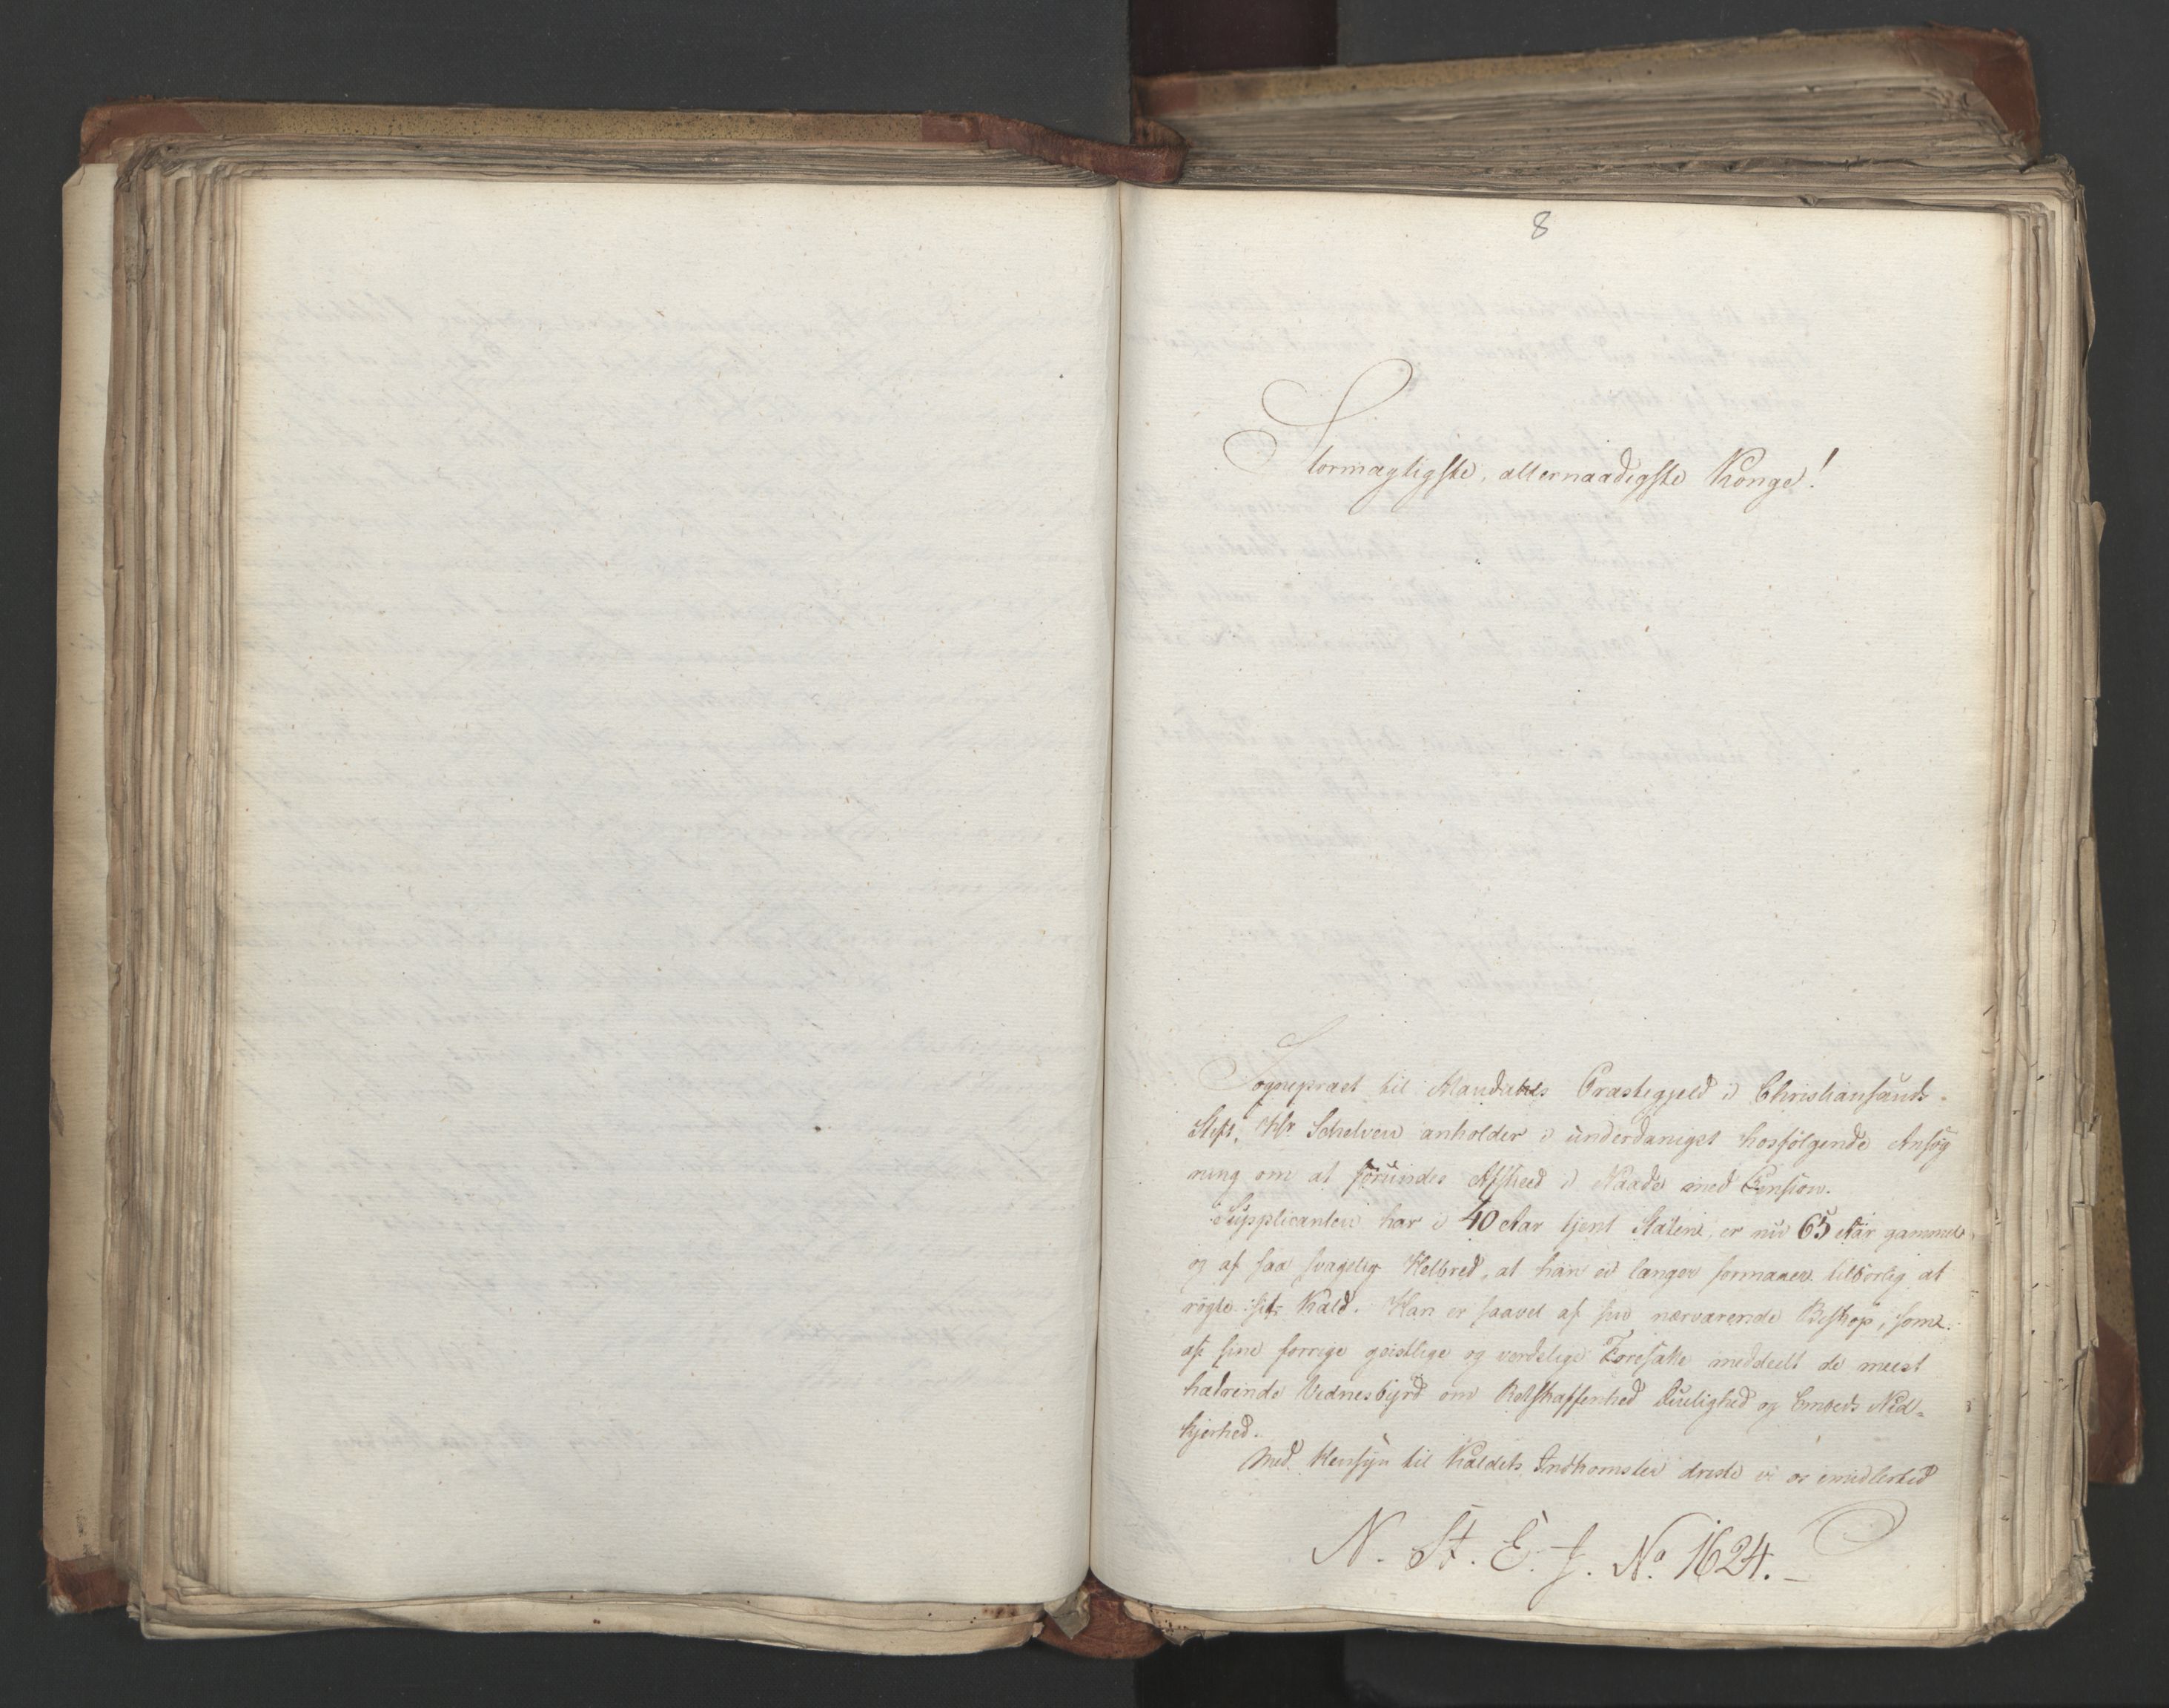 8
Stormægtigste, allernaadigste Konge!
Sognepræst til Mandahls Præstegjeld i Christiansands
Stift, Hr. Schelven anholder i underdanigst hosfølgende Ansøg
ning om at forundes Afskeed i Naade med Pension.
Supplicanten har i 40 Aar tjent Staten, er nu 65 Aar gammel,
og af saa svagelig Helbred, at han ei længer formaaer tilbørlig at
røgte sit Kald. Han er saavel af sin nærværende Biskop, som
af sine forrige geistlige og verdslige Foresatte meddeelt de meest
hædrende Vidnesbyrd om Retskaffenhed Duelighed og Embeds Nid-
kjerhed.
Med Hensyn til Kaldets Indkomster driste vi os imidlertid
N. St. E. J. No 1624.